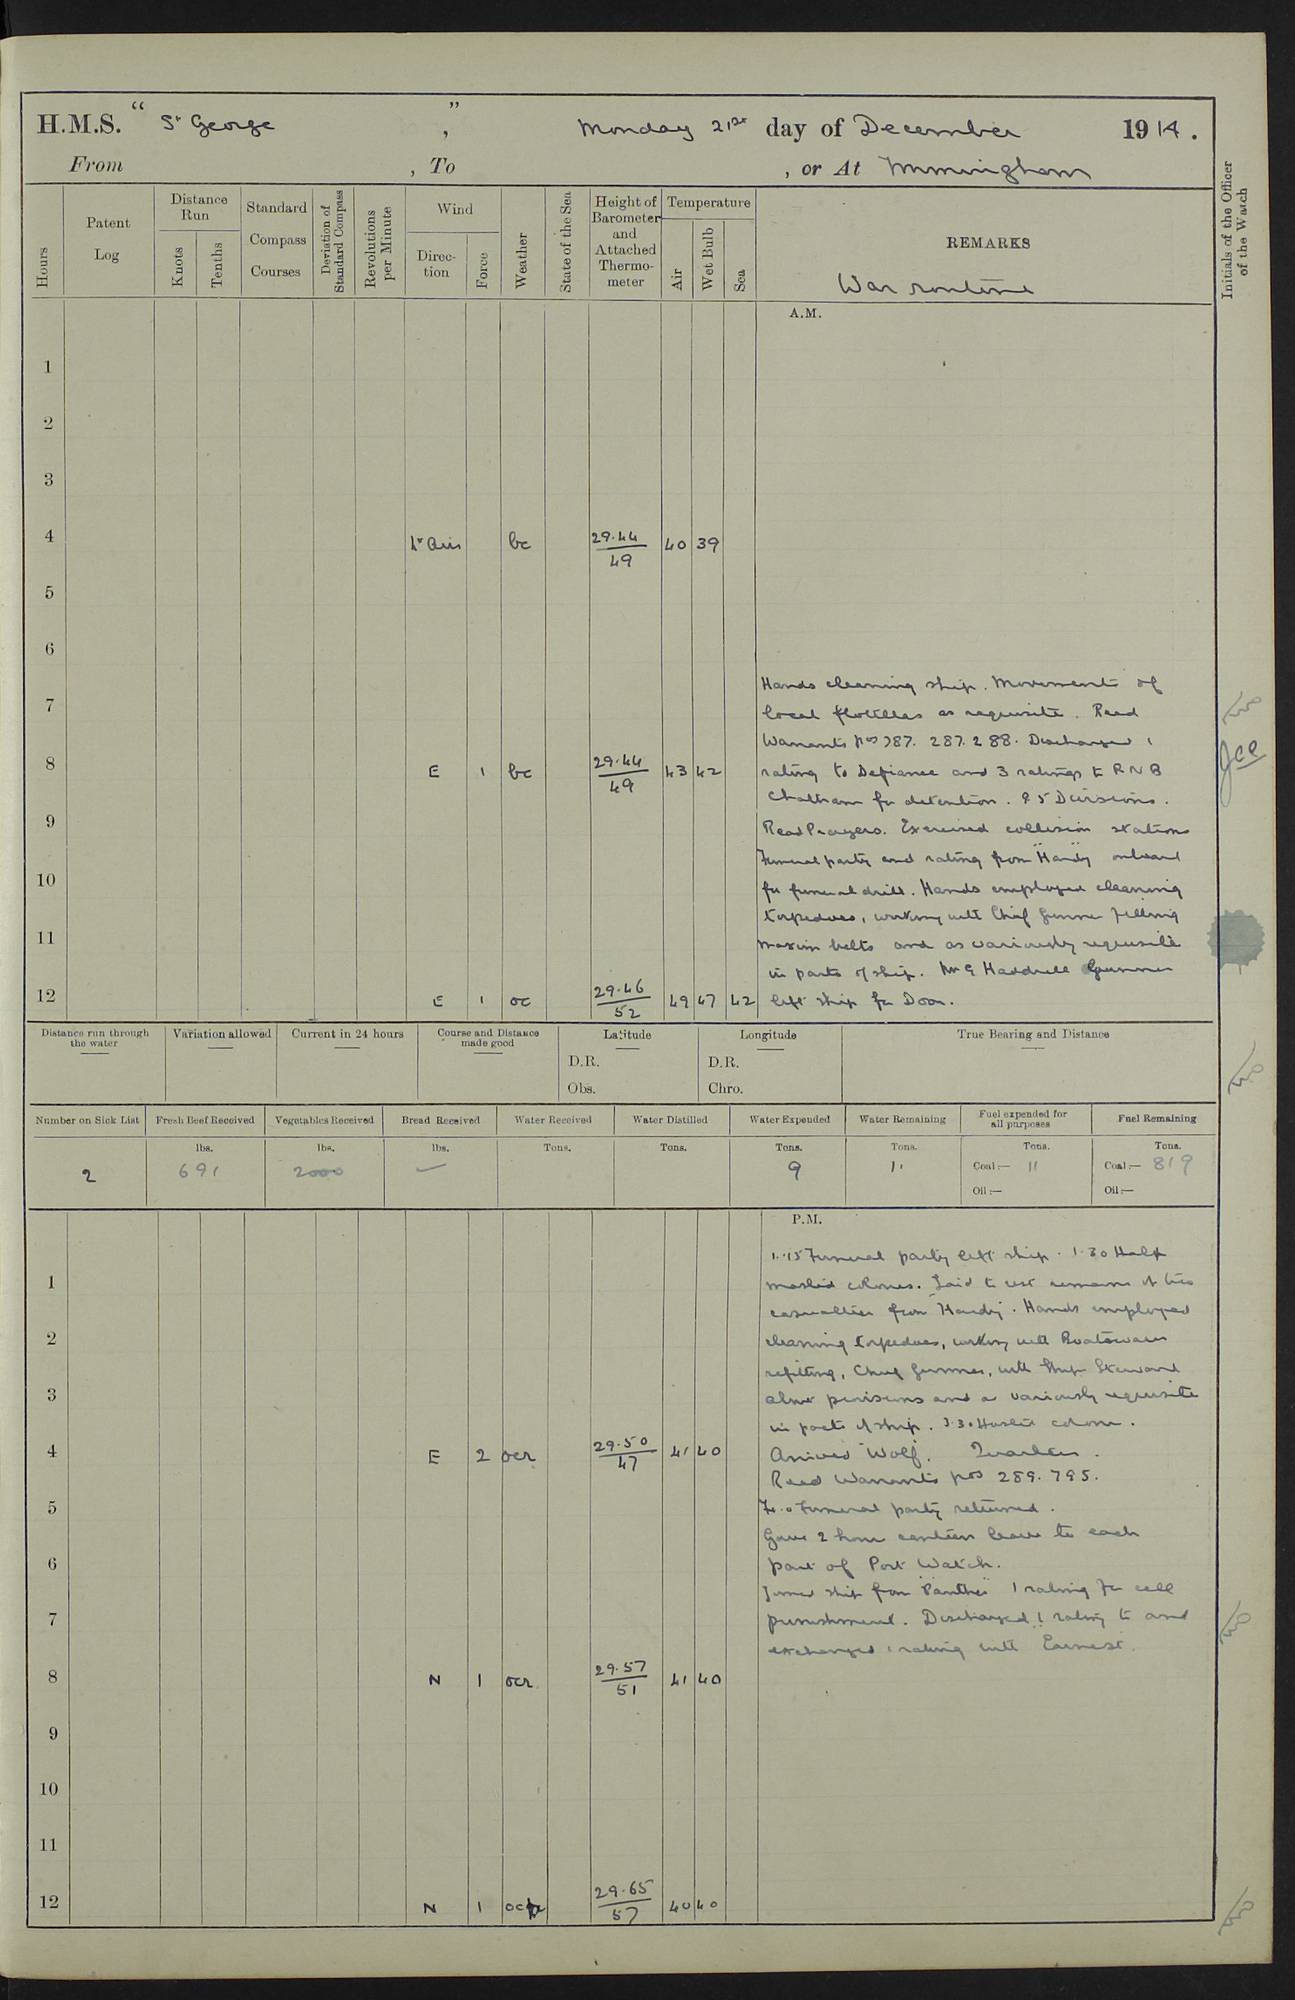 H.M.S. “ St George ” , Monday 21st day of December 1914 .
From , To , or At Immingham
Hours
Patent Log
Distance Run
Knots
Tenths
Standard Compass Courses
Deviation of Standard Compass
Revolutions per Minute
Wind
Direc-tion
Force
Weather
State of the Sea
Height of Barometer and Attached Thermo-meter
Temperature
Air
Wet Bulb
Sea
REMARKS
War routine
Initials of the Officer of the Watch
A.M.
1
2
3
4 Lt Airs bc 29.44/49 40 39
5
6
Hands cleaning ship. Movements of
7
local flotillas as requisite. Read
Warrants Nos 787. 287. 288. Discharged 1
8 E 1 bc 29.44/49 43 42 rating to Defiance and 3 ratings to R N B
Chatham for detention. 9.5 Divisions.
9 Read Prayers. Exercised collision stations
Funeral party and rating from "Hardy" onboard
10 for funeral drill. Hands employed cleaning
torpedoes, working with Chief Gunner filling
11 maxim belts and as variously requisite
in parts of ship. Mr G Haddrell Gunner
12 E 1 oc 29.46/52 49 47 42 left ship for Doon.
Distance run through the water
Variation allowed
Current in 24 hours
Course and Distance made good
Latitude
D.R.
Obs.
Longitude
D.R.
Chro.
True Bearing and Distance
Number on Sick List Fresh Beef Received Vegetables Received Bread Received Water Received Water Distilled Water Expended Water Remaining Fuel expended for all purposes Fuel Remaining
lbs. lbs. lbs. Tons. Tons. Tons. Tons. Tons. Tons.
2 691 2000 — 9 Coal:— 11 Coal:— 819
Oil:— Oil:—
P.M.
1.15 Funeral party left ship. 1.30 Half
1 masted colours. Laid to rest remains of two
casualties from "Hardy". Hands employed
2 cleaning torpedoes, working with Boatswain
refitting, Chief Gunner, with Ship Steward
3 about provisions and as variously requisite
in parts of ship. 3.30 Hoisted colours.
4 E 2 ocr 29.50/47 41 40 Arrived "Wolf".
Read Warrants Nos 289. 795.
5 Funeral party returned.
Gave 2 hour canteen leave to each
6 part of Port Watch.
Joined ship from "Panther" 1 rating for cell
7 punishment. Discharged 1 rating to and
exchanged 1 rating with Earnest.
8 N 1 ocr 29.57/51 41 40
9
10
11
12 N 1 29.65/57 40 40